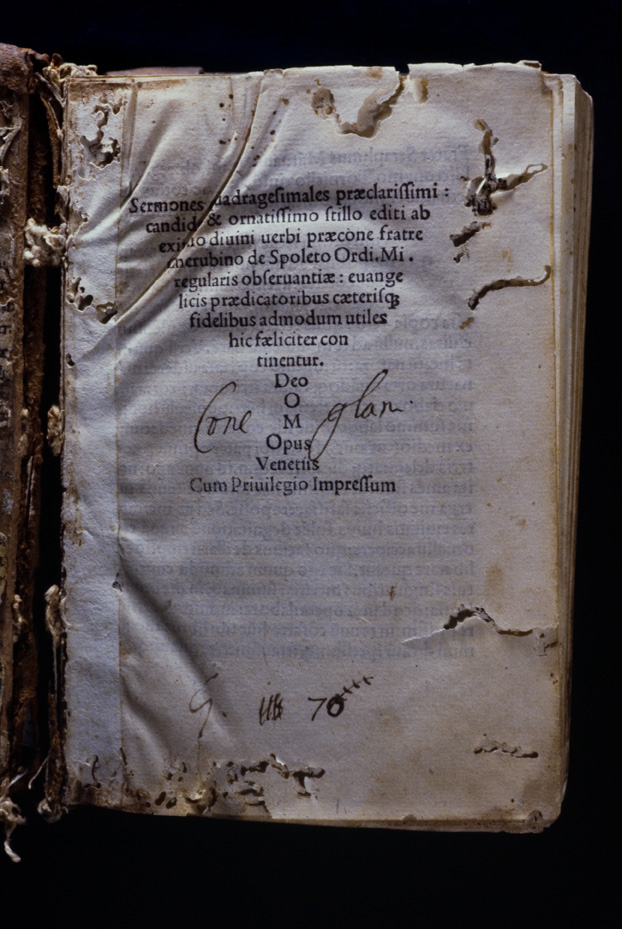 Sermones quadragesimales præclarissimi :
candido & ornatissimo stillo editi ab
eximio diuini uerbi præcone fratre
cherubino de Spoleto Ordi. Mi .
regularis obseruantiæ : euange
licis prædicatoribus cæterisqꝫ
fidelibus admodum utiles
hic fæliciter con
tinentur.
Deo
O
M
Opus
Venetiis
Cum Priuilegio Impressum
70